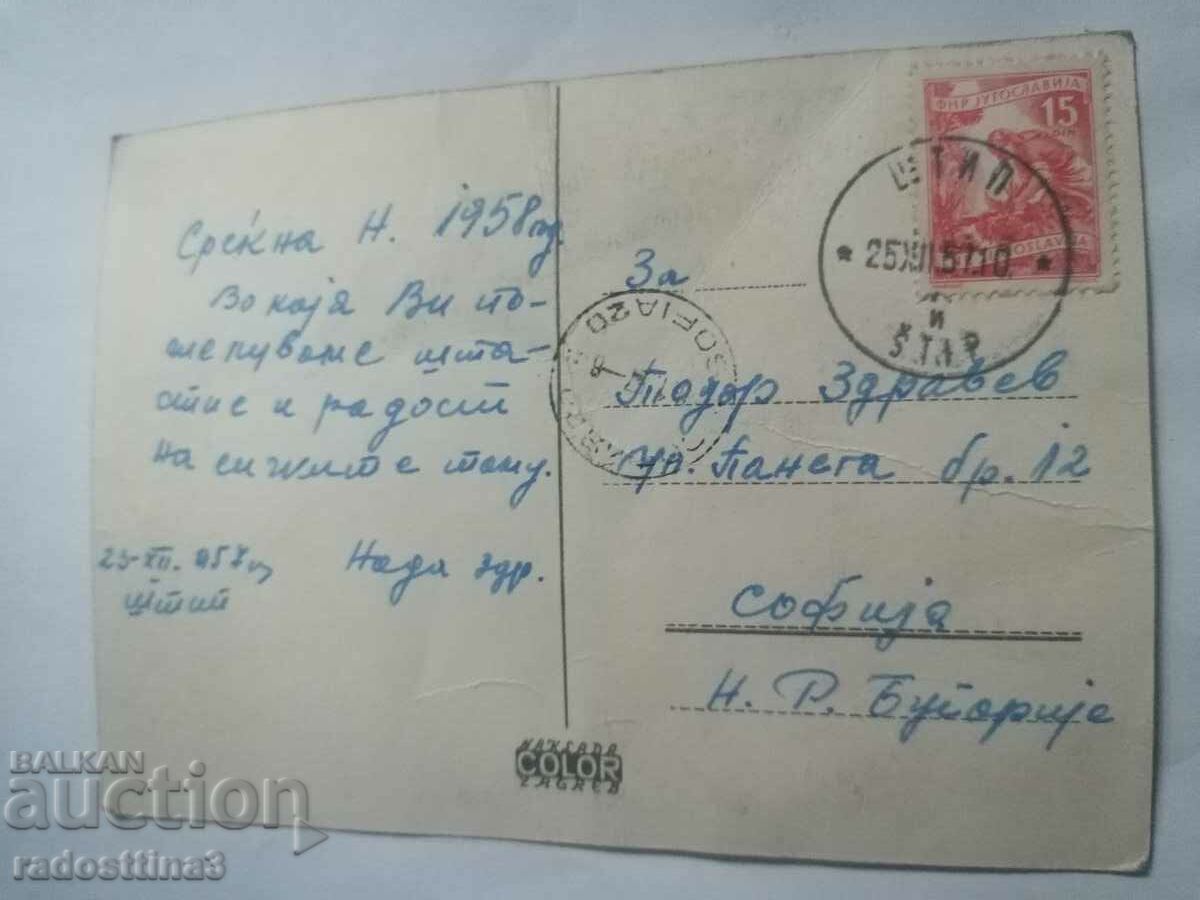 Среќна Н. 1958 год.
Во која Ви по-
желуваме шта-
стие и радост
на сижите
25-XII. 957 г
Штип
Нада здр.
За
Тодор Здравев
ул. Панега бр. 12
Софија
Н. Р. Бугарије
ФНР ЈУГОСЛАВИЈА
15
DIN
ШТИП
* 25 XII. 57.10 *
И
ŠTIP
SOFIA 20
NAKLADA
COLOR
ZAGREB
BALKAN
auction
radosttina3